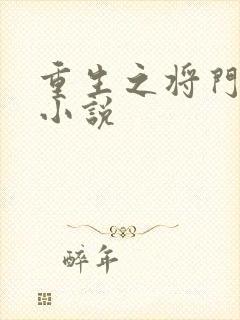 重生之将門
小說
醉年